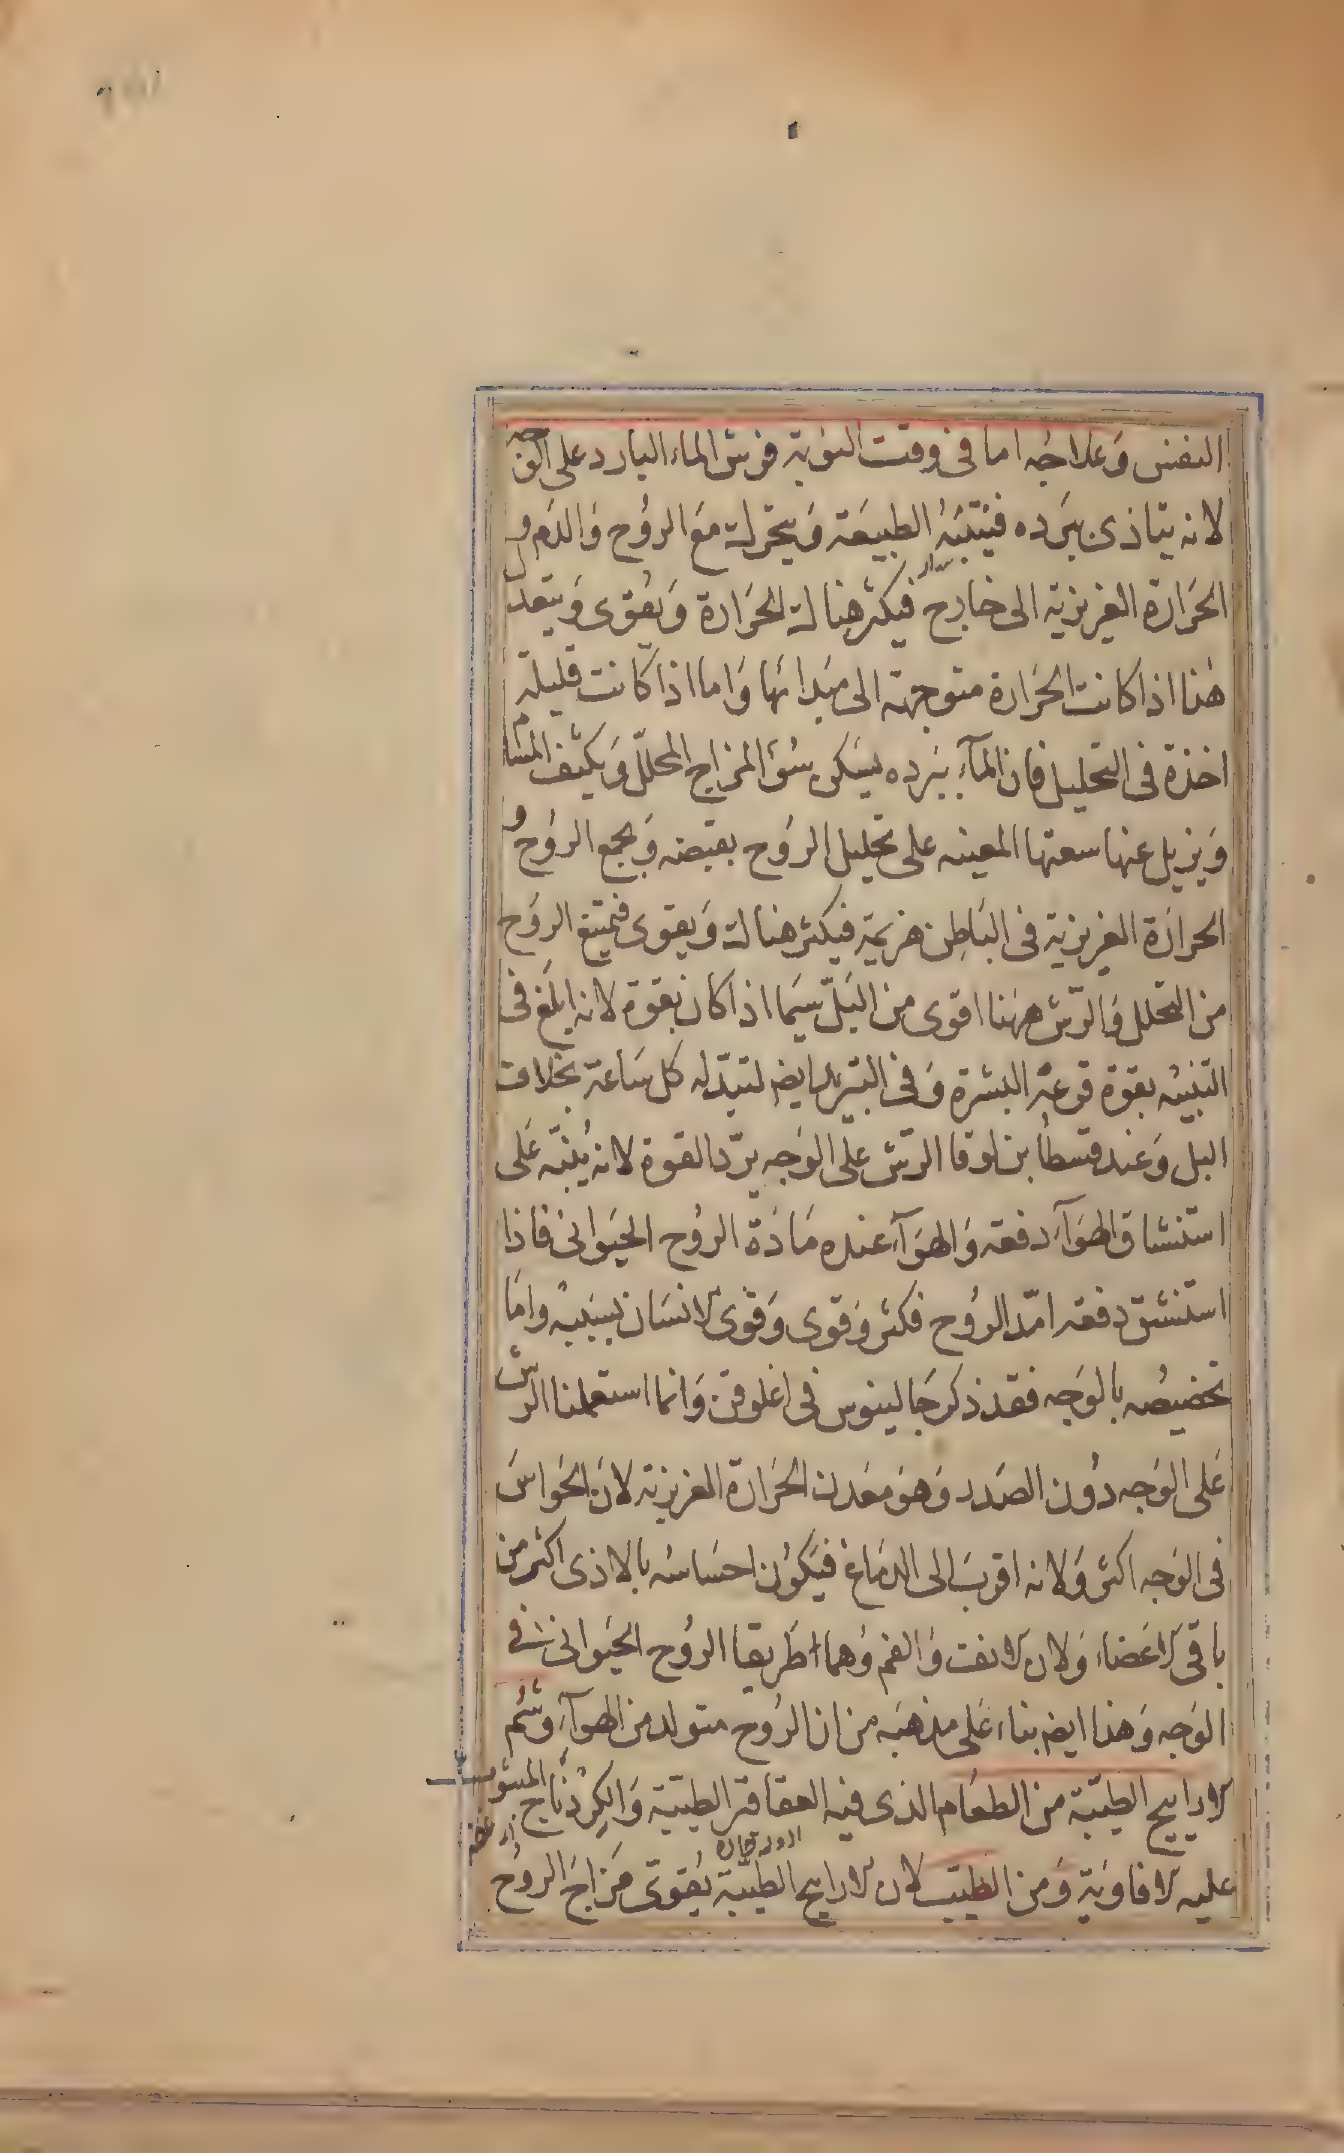 النفس وَعلاجُه اما فى وقت النوْبة فرش الماء البارد على الوجه
لانه يتاذى ببَرده فيَتنبّهُ الطبيعَة وَيتحرك مَعَ الروُح وَالدَم و
الحَرارة الغريزية الى خارج فيكثر هناك الحَرارة وَيقوى وَيتعدل
هٰذا اذا كانت الحَرارة متوجهة الى مَبدائها وَاما اذا كانت قليلة
اخذة فى التحليل فان المآء ببَرده يسَكن سُوْ المزاج المحلّل وَيكثف المسام
وَيزيل عنها سعتها المعينه على تحليل الروُح بقبضه وَيجمع الروُح و
الحرارَة الغريزية فى البَاطِن هزيمَة فيكثر هناك وَيقوى فيمتنع الروَح
من التحلل وَالرّش ههُنا اقوى من البَلّ سيَما اذا كان بقوة لانه ابلَغ فى
التنبيْه بقوة قرعهِ البشرة وَفى التبريد ايضا لتبدّله كل سَاعة بخلاف
البل وَعند قسطا بن لوقا الرش على الوَجه يرّد القوة لانه يُنبّه عَلى
استنشاق الهوَآء دفعه وَالهوَآء عنده مَادَة الروُح الحيَوانى فاذا
استنشق دفعه امّد الروُح فكثر وَقوى وَقوى الانسَان بسَببهُ وامَا
تخصيصُه بالوَجه فقد ذكر جَالينوس فى اغلوقن وَانما استعملنا الرش
عَلى الوَجه دوُن الصَدر وَهوَ معَدن الحَرارة الغريزية لانَ الحَواسَ
فى الوَجه اكثر وَلانه اقربَ الى الدمَاغ فيَكوُن احسَاسُه بالاذى اكثر من
باقى الاعَضاء وَلان الانف وَالفم وَهما طَريقا الروُح الحيَوانى فى
الوَجه وَهذا ايضا بناء عَلى مذهبَه من ان الروُح متولد من الهوآء وَشَم
الارايح الطيّبة من الطعَام الذى فيه العقاقر الطيّبة وَالكِرْدَنْاج المبثوث
عليه الافاويَة وَمن الطيّب لان الارايح الطيّبة يُقوىّ مَزاجَ الروُح